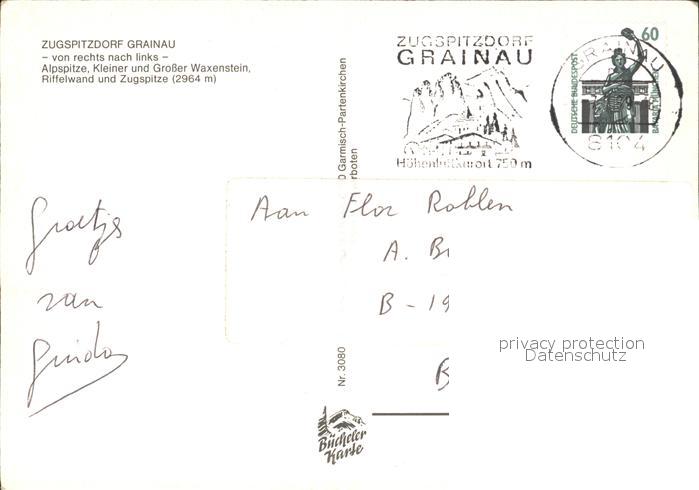 ZUGSPITZDORF GRAINAU
– von rechts nach links –
Alpspitze, Kleiner und Großer Waxenstein,
Riffelwand und Zugspitze (2964 m)
ZUGSPITZDORF
GRAINAU
Höhenluftkurort 750 m
60
DEUTSCHE BUNDESPOST
BAVARIA MÜNCHEN
GRAINAU
8104
Garmisch-Partenkirchen
Groetjes
van
Guido
Aan Flor
A. B
B - 19
B
Nr. 3080
Bücheler
Karte
privacy protection
Datenschutz